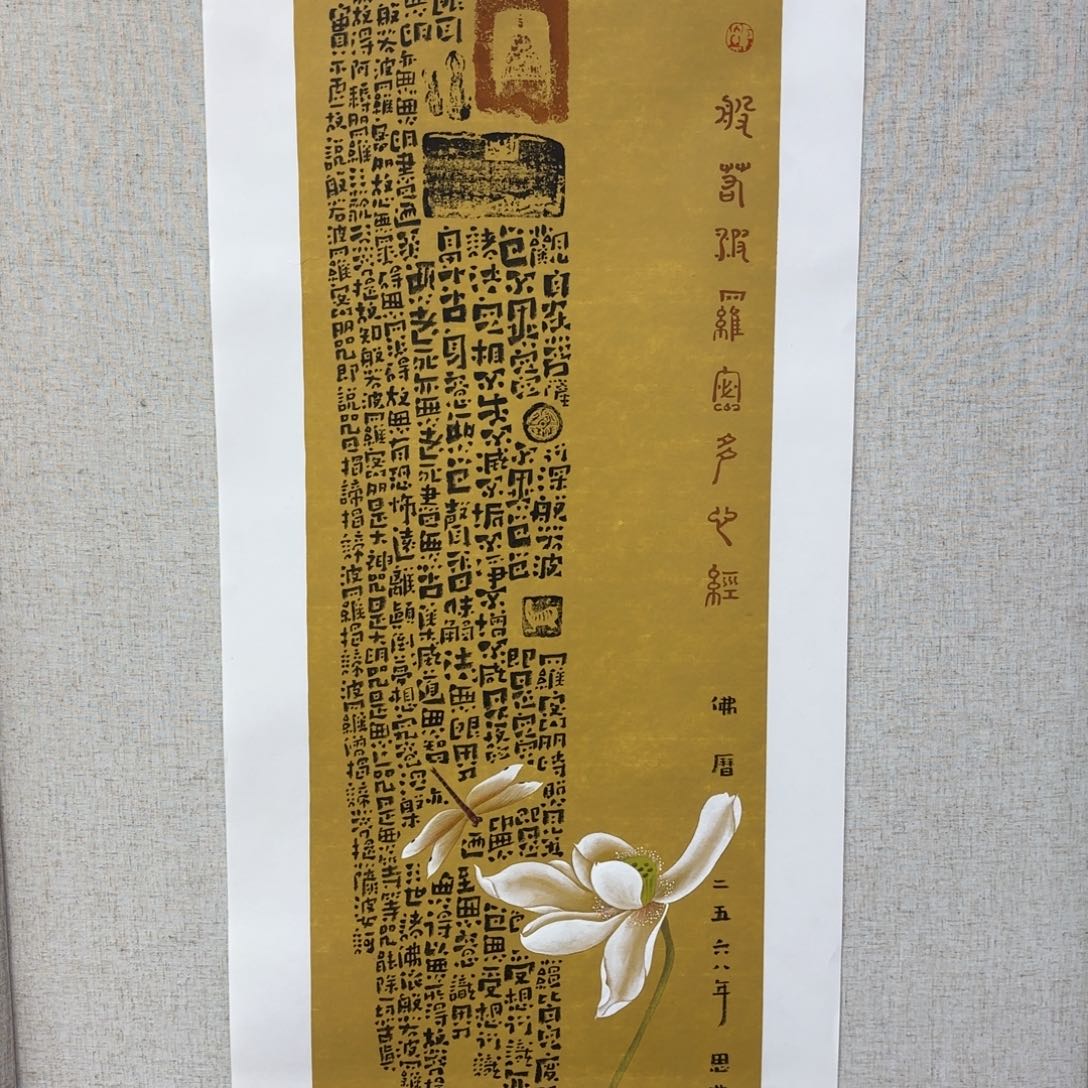 般若波羅蜜多心經
佛曆二五六八年 思
觀自在菩薩行深般若波羅蜜多時照見五蘊皆空度
色不異空空不異色色即是空受想行識亦
諸法空相不生不滅不垢不淨不增不減是故空中無色無受想行識
鼻舌身意無色聲香味觸法無眼界乃至無意識界
亦無無明盡乃至無老死亦無老死盡無苦集滅道無智亦無得以無所得故菩
般若波羅蜜多故心無罣礙無罣礙故無有恐怖遠離顛倒夢想究竟涅槃三世諸佛依般若波羅
故得阿耨多羅三藐三菩提故知般若波羅蜜多是大神咒是大明咒是無上咒是無等等咒能除一切苦真
實不虛故說般若波羅蜜多咒即說咒曰揭諦揭諦波羅揭諦波羅僧揭諦菩提薩婆訶